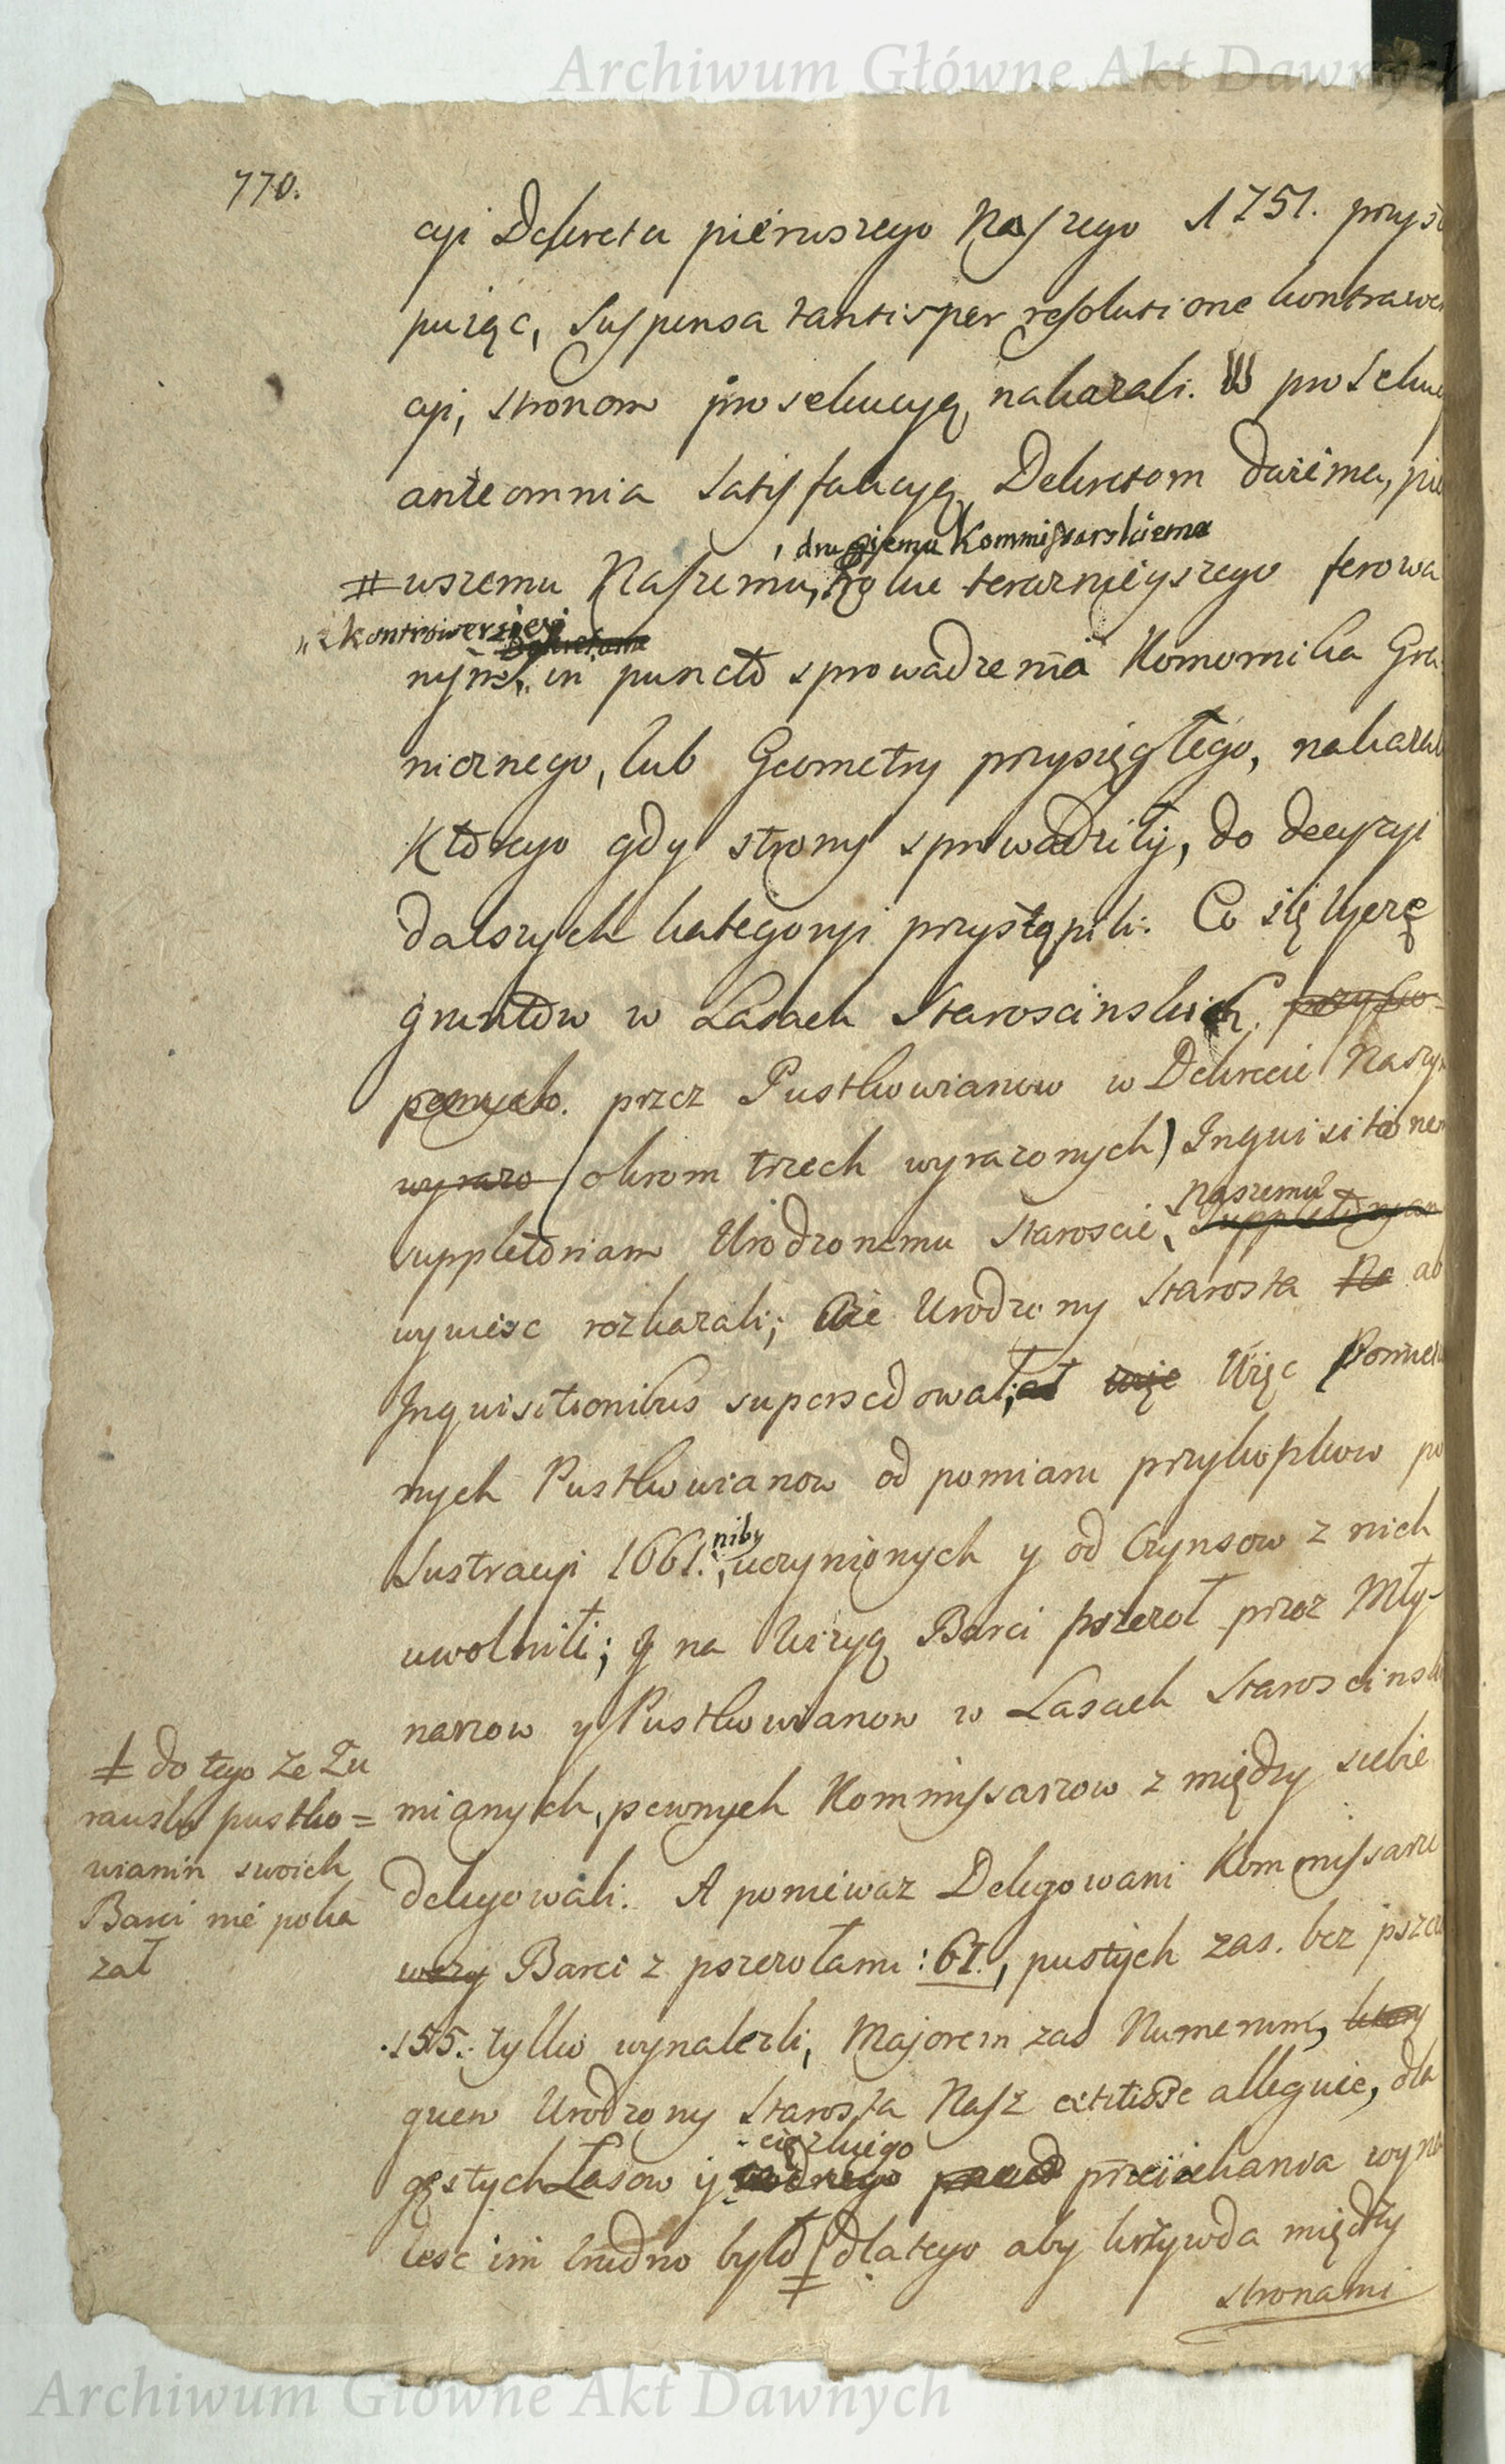 Archiwum Główne Akt Dawnych
770.
cyi Dekretu pierwszego Naszego 1751. przyst
puiąc, Suspensa tantisper resolutione kontrawe
cyi, stronom prosekucyą nakazali. W prosekuc
ante omnia Satysfakcyą Dekretom dwiema, pie
, drugiemu Kommissarskiemu
# wszemu Naszemu, teraznieyszego ferowa
z kontrowersiey Dekretom
nym, in puncto sprowadzenia Komornika Gra
nicznego, lub Geometry przysięgłego, nakazali
Ktorego gdy strony sprowadziły, do decyzyi
dalszych kategoryi przystąpili. Co się tycze
gruntow w Lasach Staroscinskich
przez Pustkowianow w Dekrecie Naszym
wyrazo (okrom trzech wyrazonych) Inquisitionem
naszemu
suppletoriam Urodzonemu Staroscie, Suppletoryam
wywiesc rozkazali; Ze Urodzony Starosta Na ab
Inquisitionibus supersedował; więc Więc Pomie
nych Pustkowianow od pomiaru przykopkow po
niby
Lustracyi 1661. uczynionych y od Czynsow z nich
uwolnili; y na Wizyą Barci pszczoł przez Mły-
narzow y Pustkowianow w Lasach Staroscinski
mianych, pewnych Kommissarzow z między siebie
delegowali. A poniewaz Delegowani Kommissarze
Barci z pszczołami : 61., pustych zas. bez pszcz
.155. tylko wynalezli, Majorem zas Numerum,
quem Urodzony Starosta Nasz extitisse alleguie, dla
cięzkiego
gęstych Lasow y przeiechania wyna
lesc im trudno było ‡ dlatego aby krzywda między
stronami
‡ do tego ze Zu
rawski pustko=
wianin swoich
Barci nie poka
zał
Archiwum Główne Akt Dawnych